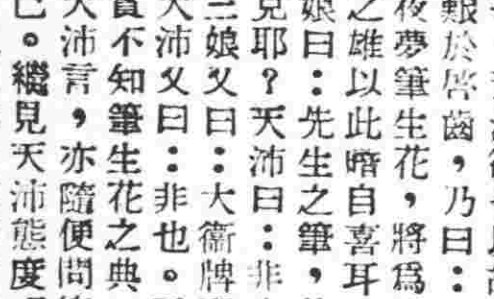 艱於啓齒，乃曰：
夜夢筆生花，將爲
之雄以此暗自喜耳
娘曰：先生之筆，
見耶？天沛曰：非
三娘父曰：大衞牌
大沛父曰：非也。
實不知筆生花之典
大沛言，亦隨便問
已。繼見天沛態度